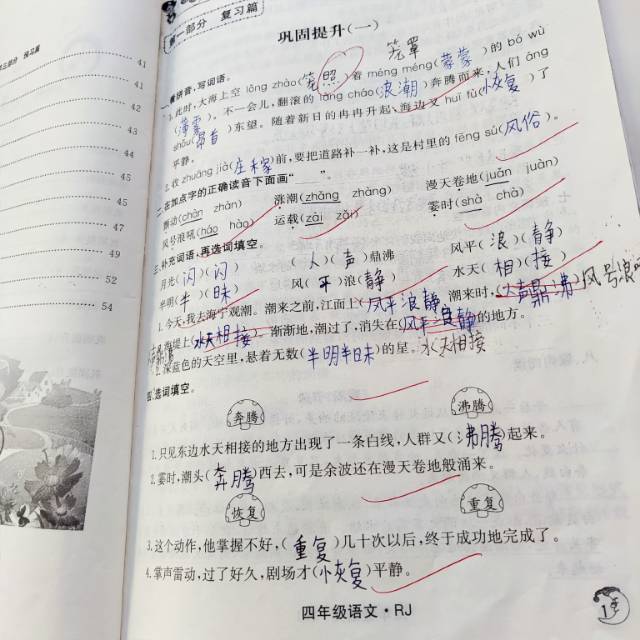 第一部分 复习篇
巩固提升(一)
笼罩
一、看拼音,写词语。
1.此时,大海上空 lǒng zhào(笼照)着 méng méng(蒙蒙)的 bó wù
(薄雾)。不一会儿,翻滚的 làng cháo(浪潮)奔腾而来,人们 áng
shǒu(昂首)东望。随着新日的冉冉升起,海边又 huī fù(恢复)了
平静。
2.收 zhuāng jià(庄稼)前,要把道路补一补,这是村里的 fēng sú(风俗)。
二、在加点字的正确读音下面画“____”。
颤动(chàn zhàn) 涨潮(zhǎng zhàng) 漫天卷地(juǎn juàn)
风号浪吼(háo hào) 运载(zài zǎi) 霎时(shà chà)
三、补充词语,再选词填空。
月光(闪)(闪) (人)(声)鼎沸 风平(浪)(静)
半明(半)(昧) 风(平)浪(静) 水天(相)(接)
1.今天,我去海宁观潮。潮来之前,江面上(风平浪静),潮来时,(人声鼎沸)风号浪吼
海堤上(水天相接)。渐渐地,潮过了,消失在(风平浪静)的地方。
2.深蓝色的天空里,悬着无数(半明半昧)的星。水天相接
四、选词填空。
奔腾 沸腾
1.只见东边水天相接的地方出现了一条白线,人群又(沸腾)起来。
2.霎时,潮头(奔腾)西去,可是余波还在漫天卷地般涌来。
恢复 重复
3.这个动作,他掌握不好,(重复)几十次以后,终于成功地完成了。
4.掌声雷动,过了好久,剧场才(恢复)平静。
四年级语文·RJ
1
41
41
42
43
44
45
45
47
49
52
54